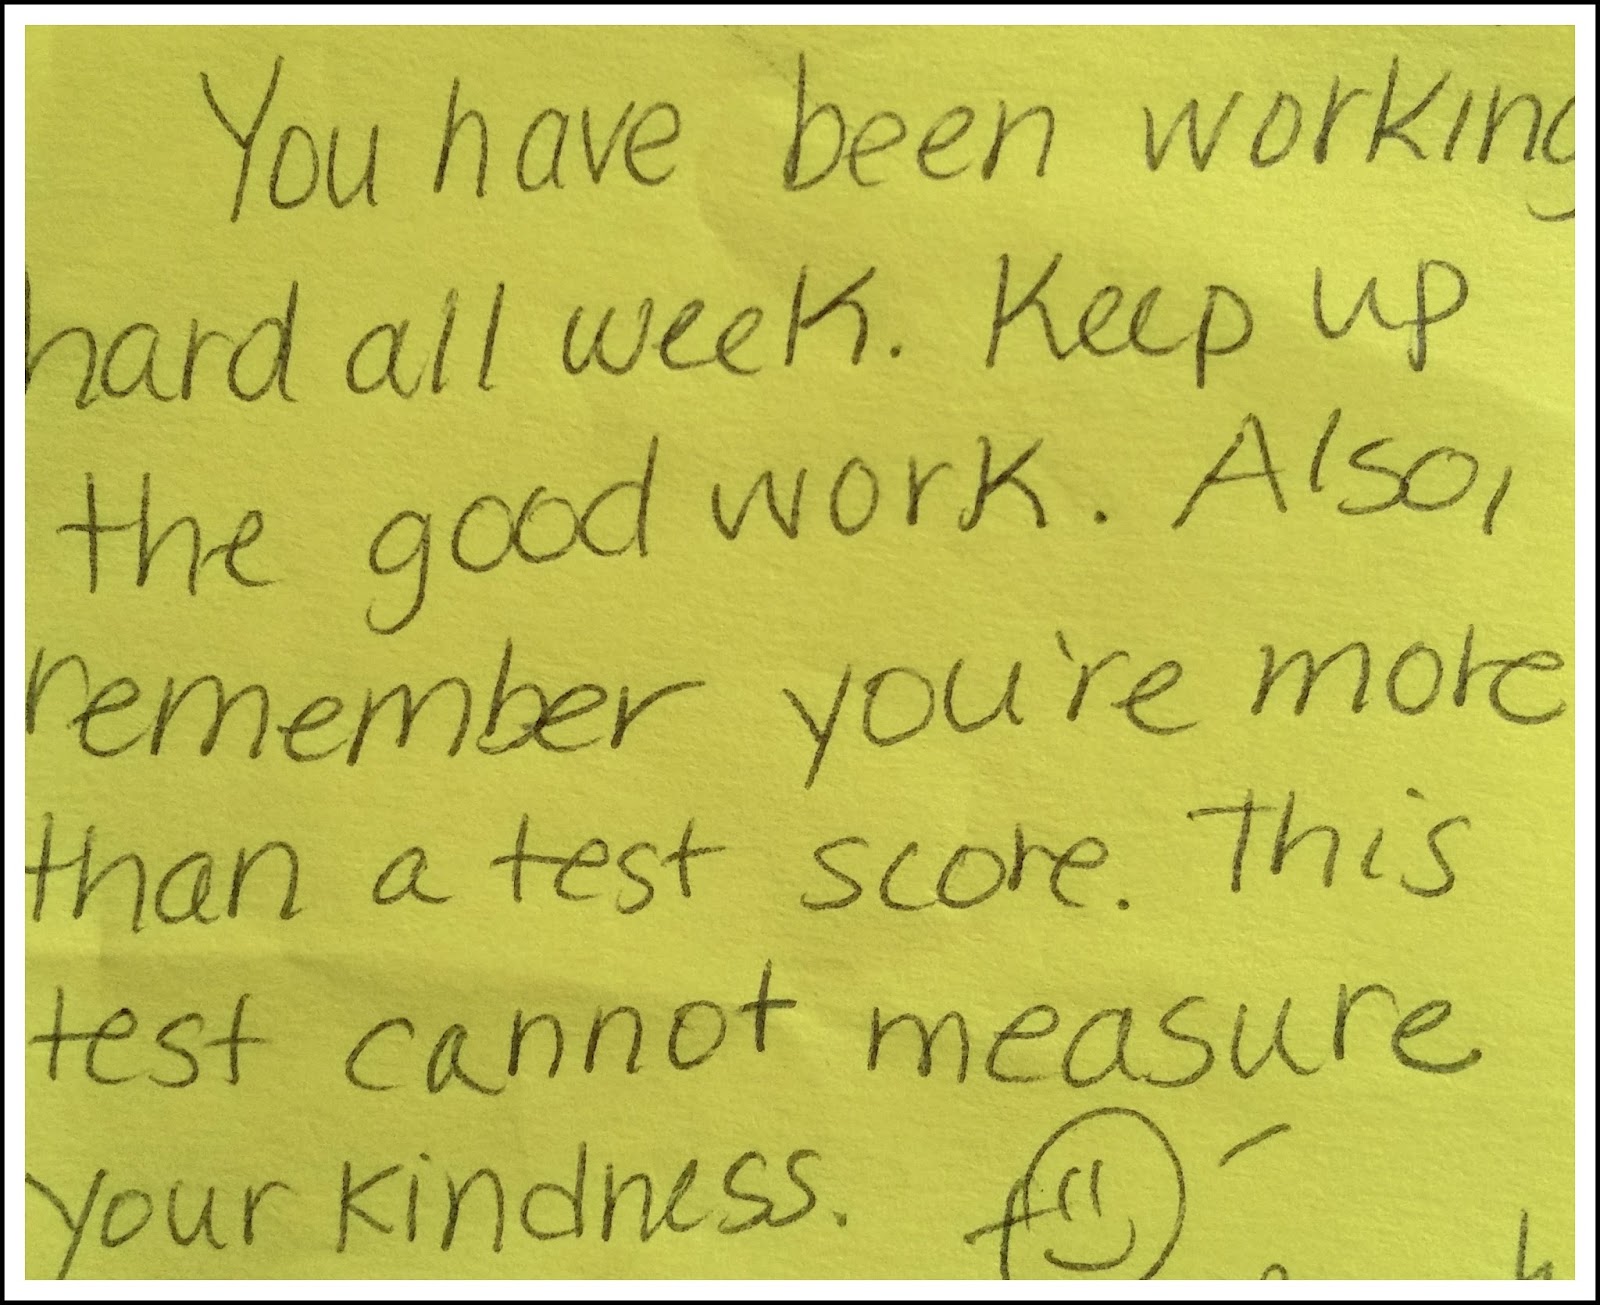 You have been working
hard all week. Keep up
the good work. Also,
remember you're more
than a test score. This
test cannot measure
your kindness.